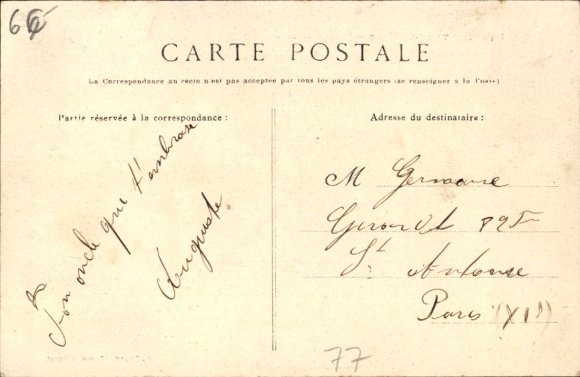 66
CARTE POSTALE
La Correspondance au recto n'est pas acceptée par tous les pays étrangers (se renseigner à la Poste)
Partie réservée à la correspondance :
Ton oncle que t'embrasse
Auguste
Adresse du destinataire :
M Germaine
St Antoine
Paris (XIe)
77